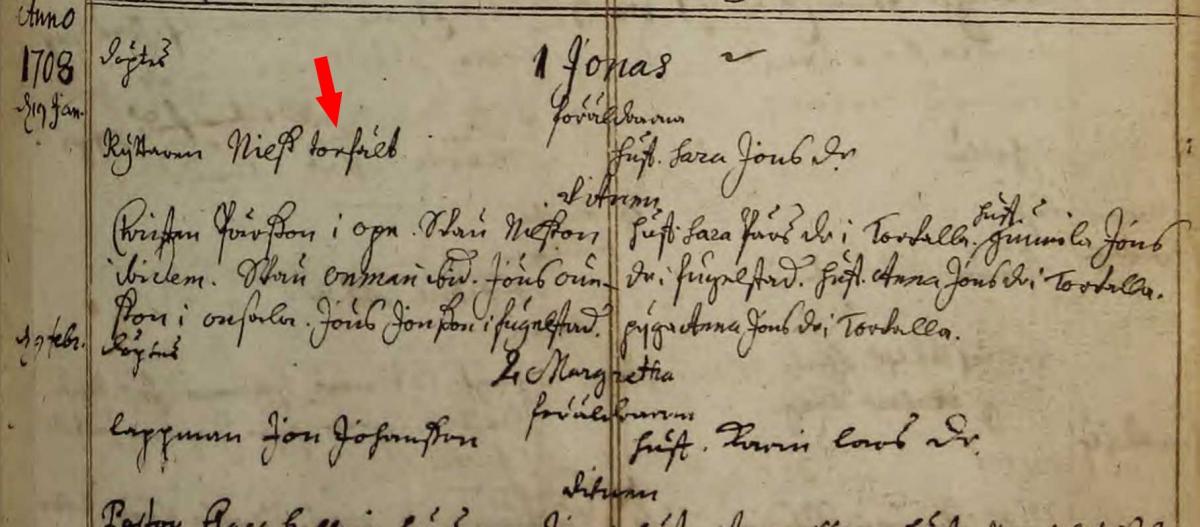 Anno
1708 döptes 1 Jonas
d. 19 Jan. föräldrarna
Ryttaren Nielß torfält hust. Sara Jons dr
vitnen
Christen Pärßon i ope. Skau Nilßon hust. Sara Pärs dr i Torvalla. hust. Gunnila Jöns
ibidem. Skau onman ibid. Jöns oun- dr i fugelstad. hust. Anna Jöns dr i Torvalla.
ßon i onsala. Jöns Jonßon i fugelstad. pyga Anna Jons dr i Torvalla.
d. 9 febr. döptes
2 Margretha
föräldrarna
lappman Jon Johanßon hust. Karin lars dr.
vitnen
Pastor